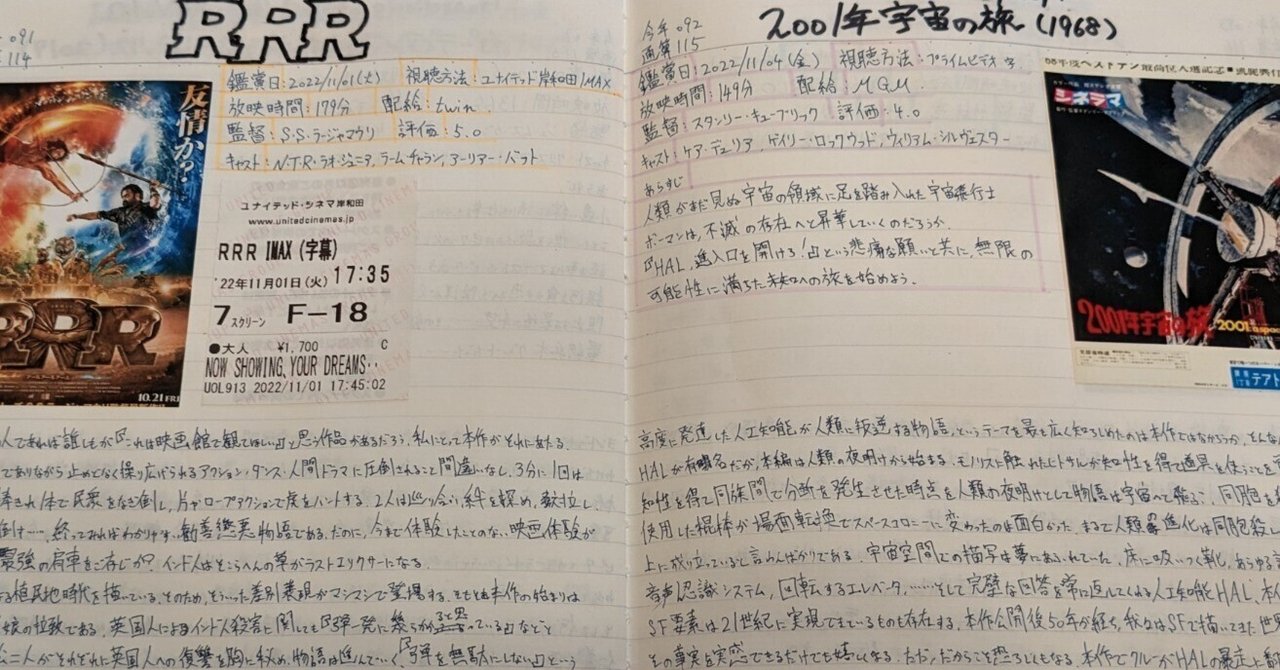 091
114
RRR
鑑賞日:2022/11/01(火) 視聴方法:ユナイテッド岸和田IMAX
放映時間:179分 配給:twin
監督:S.S.ラージャマウリ 評価:5.0
キャスト:N.T.R.ラオ・ジュニア,ラーム・チャラン,アーリアー・バット
友情か?
RRR
10.21 FRI
ユナイテッド・シネマ岸和田
www.unitedcinemas.jp
RRR IMAX (字幕)
'22年11月01日(火) 17:35
7 スクリーン F-18
●大人 ¥1,700 C
NOW SHOWING, YOUR DREAMS‥
UOL913 2022/11/01 17:45:02
人であれば誰しもが『これは映画館で観てほしい』と思う作品があるだろう。私にとって本作がそれにあたる。
でありながら止めどなく繰り広げられるアクション・ダンス・人間ドラマに圧倒されること間違いなし。3分に1回は
され体で民衆をなぎ倒し、片やロープアクションで虎をハントする。2人は巡り合い絆を深め、敵対し、
倒す…。終ってみればわかりやすい勧善懲悪物語である。だのに、今まで体験したことのない映画体験が
最強の肩車をご存じか?インド人はそこらへんの草がラストエリクサーになる。
る植民地時代を描いている。そのため、そういった差別表現がマシマシで登場する。そもそも本作の始まりは
娘の拉致である。英国人によるインド人殺害に関しても『弾一発に幾らかかっている』などと
二人がそれぞれに英国人への復讐を胸に秘め、物語は進んでいく。『弾を無駄にしない』という
今年 092
通算 115
2001年宇宙の旅(1968)
鑑賞日:2022/11/04(金) 視聴方法:プライムビデオ 字
放映時間:149分 配給:MGM
監督:スタンリー・キューブリック 評価:4.0
キャスト:ケア・デュリア,ゲイリー・ロックウッド,ウィリアム・シルヴェスター
あらすじ
人類がまだ見ぬ宇宙の領域に足を踏み入れた宇宙飛行士
ボーマンは、不滅の存在へと昇華していくのだろうか
『HAL,進入口を開けろ!』という悲痛な願いと共に、無限の
可能性に満ちた未来への旅を始めよう。
シネマ
2001年宇宙の旅
2001: a space
テアト
高度に発達した人工知能が人類に叛逆する物語、というテーマを最も広く知らしめたのは本作ではなかろうか。そんな
HALが有名だが、本編は人類の夜明けから始まる。モノリスに触れたヒトザルが知性を得て道具を使うことを
知性を得て同族間で分断を発生させた時点を人類の夜明けとして物語は宇宙へと飛ぶ。同胞を
使用した棍棒が場面転換でスペースコロニーに変わったのは面白かった。まるで人類の進化は同胞殺し
上に成り立っていると言わんばかりである。宇宙空間での描写は夢にあふれていた。床に吸いつく靴、あらゆる
音声認識システム、回転するエレベータ、……そして完璧な回答を常に返してくれる人工知能HAL。本
SF要素は21世紀に実現できているものも存在する。本作公開後50年が経ち、我々はSFで描いてきた世
その事実を実感できるだけでも嬉しくなる。ただ、だからこそ恐ろしくもなる。本作でクルーがHALの暴走